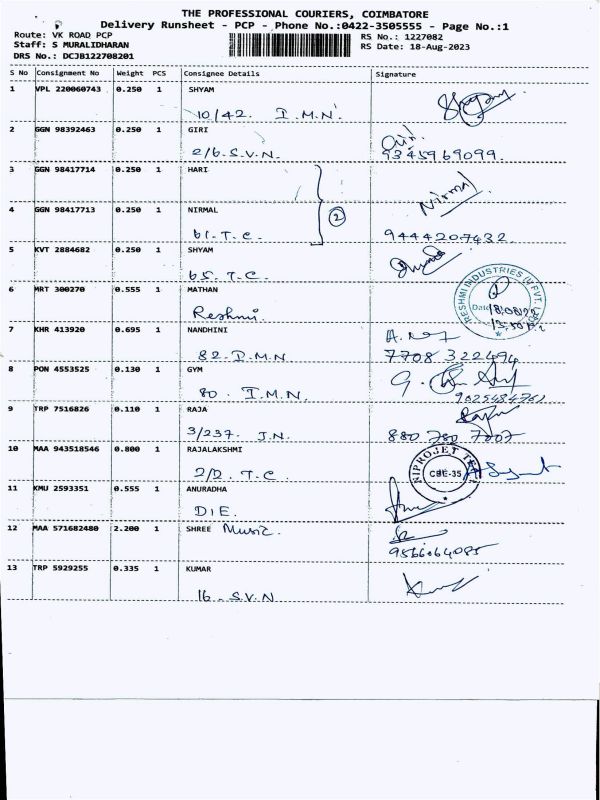 THE PROFESSIONAL COURIERS, COIMBATORE
Delivery Runsheet - PCP - Phone No.:0422-3505555 - Page No.:1
Route: VK ROAD PCP
RS No.: 1227082
Staff: S MURALIDHARAN
RS Date: 18-Aug-2023
DRS No.: DCJB122708201
S No Consignment No Weight PCS Consignee Details Signature
1 VPL 220060743 0.250 1 SHYAM
10/42. I.M.N.
2 GGN 98392463 0.250 1 GIRI
2/6. S.V.N. 9345969099.
3 GGN 98417714 0.250 1 HARI
Nirmal
2
4 GGN 98417713 0.250 1 NIRMAL
61. T.C. 9444207432.
5 KVT 2884682 0.250 1 SHYAM
65. T.C.
6 MRT 300270 0.555 1 MATHAN
Reshmi.
RESHMI INDUSTRIES
Date
7 KHR 413920 0.695 1 NANDHINI
82. I.M.N. 7708 322494
8 PON 4553525 0.130 1 GYM
80. I.M.N.
9 TRP 7516826 0.110 1 RAJA
3/237. J.N. 880 780 7007
10 MAA 943518546 0.800 1 RAJALAKSHMI
2/2. T.C.
CBE-35
11 KMU 2593351 0.555 1 ANURADHA
D.I.E.
12 MAA 571682480 2.200 1 SHREE Music.
9566064085
13 TRP 5929255 0.335 1 KUMAR
16. S.V.N.